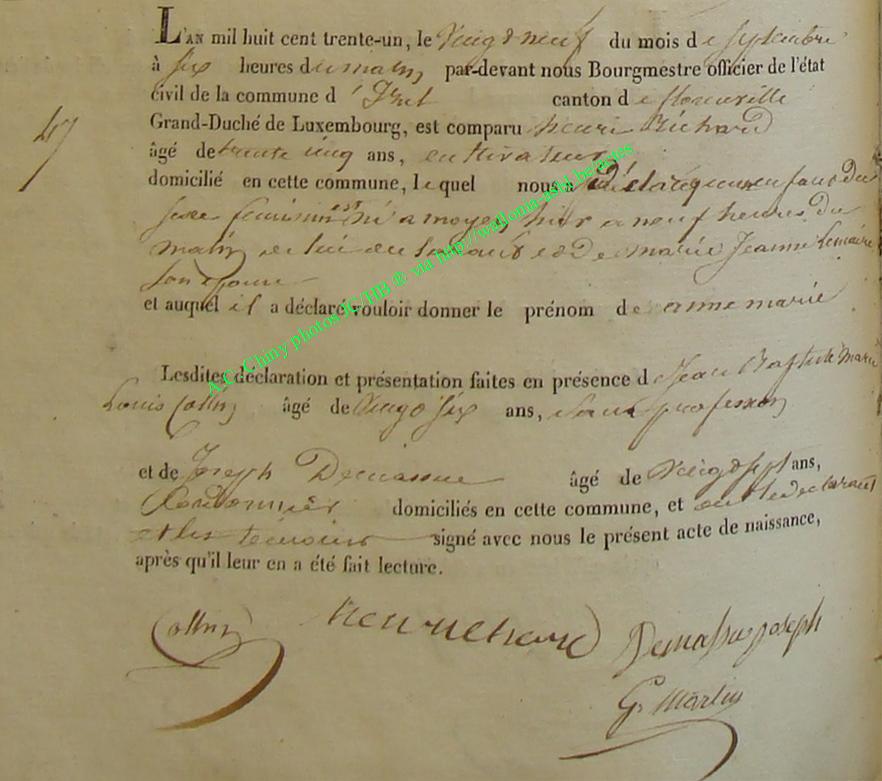 L'AN mil huit cent trente-un, le vingt neuf du mois de septembre
à six heures du matin par-devant nous Bourgmestre officier de l'état
civil de la commune d'Izel canton de florenville
Grand-Duché de Luxembourg, est comparu henri Richard
47
âgé de trente cinq ans, cultivateur
domicilié en cette commune, lequel nous a déclaré qu'un enfant du
sexe feminin est né a moyen hier a neuf heures du
matin de lui declarant et de marie Jeanne Lemaire
son epouse
et auquel il a déclaré vouloir donner le prénom de anne marie
A.C. Chiny photos JC/HB ® via http://wallonia-asbl.be/actes
Lesdites déclaration et présentation faites en présence de Jean Baptiste Marie
Louis Collin âgé de vingt six ans, sans profession
et de Joseph Demasure âgé de vingt sept ans,
Cordonnier domiciliés en cette commune, et ont le declarant
et les temoins signé avec nous le présent acte de naissance,
après qu'il leur en a été fait lecture.
Collin henri richard Demasure joseph
G. Martin